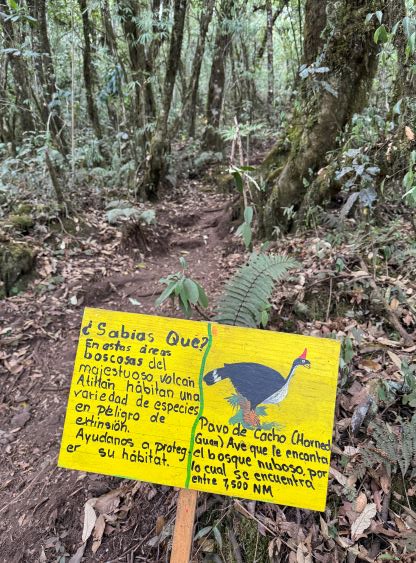 ¿Sabias Que?
En estas áreas
boscosas del
majestuoso, volcán
Atitlán hábitan una
variedad de especies
en péligro de
extinsión.
Ayudanos a proteg-
er su hábitat.
Pavo de Cacho (Horned
Guan) Ave que le encanta
el bosque nuboso, por
lo cual se encuentra
entre 7,500 NM